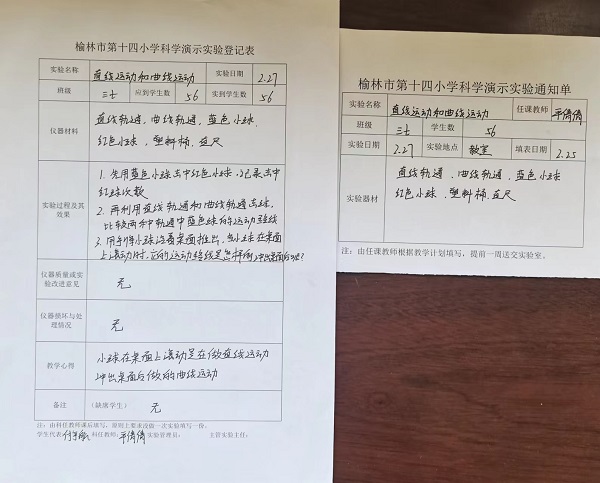 榆林市第十四小学科学演示实验登记表
实验名称 直线运动和曲线运动 实验日期 2.27
班级 三七 应到学生数 56 实到学生数 56
仪器材料 直线轨道,曲线轨道,蓝色小球,
红色小球,塑料桶,直尺
实验过程及其效果
1. 先用蓝色小球击中红色小球,记录击中
红球次数
2. 再利用直线轨道和曲线轨道击球,
比较两种轨道中蓝色球的运动路线
3. 用手将小球沿着桌面推出,当小球在桌面
上滚动时,它的运动路线是怎样的,冲出桌面后呢?
仪器质量或实验改进意见 无
仪器损坏与处理情况 无
教学心得 小球在桌面上滚动是在做直线运动
冲出桌面后做的曲线运动
备注 (缺席学生) 无
注:由科任教师课后填写,原则上要求没做一次实验填写一份。
学生代表: 科任教师: 平倩倩 实验管理员: 主管实验主任:
榆林市第十四小学科学演示实验通知单
实验名称 直线运动和曲线运动 任课教师 平倩倩
班级 三七 学生数 56
实验日期 2.27 实验地点 教室 填表日期 2.25
实验器材 直线轨道,曲线轨道,蓝色小球
红色小球,塑料桶,直尺
注:由任课教师根据教学计划填写,提前一周送交实验室。